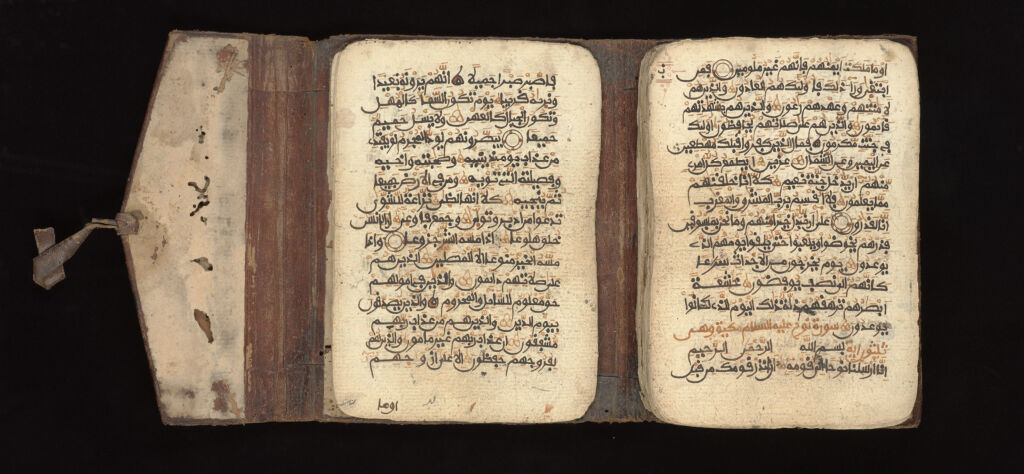 فاصبر صبرا جميلا انهم يرونه بعيدا
ونريه قريبا يوم تكون السما كالمهل
وتكون الجبال كالعهن ولا يسل حميم
حميما يبصرونهم يود المجرم لو يفتدى
من عذاب يومئذ ببنيه وصحبته واخيه
وفصيلته التى تويه ومن فى الارض جميعا
ثم ينجيه كلا انها لظى نزاعة للشوى
تدعوا من ادبر وتولى وجمع فاوعى ان الانسن
خلق هلوعا اذا مسه الشر جزوعا واذا
مسه الخير منوعا الا المصلين الذين هم
على صلاتهم دايمون والذين فى امولهم
حق معلوم للسايل والمحروم والذين يصدقون
بيوم الدين والذين هم من عذاب ربهم
مشفقون ان عذاب ربهم غير مامون والذين هم
لفروجهم حفظون الا على ازوجهم
اوما
او ما ملكت ايمنهم فانهم غير ملومين فمن
ابتغى ورا ذلك فاوليك هم العادون والذين هم
لامنتهم وعهدهم راعون والذين هم بشهدتهم
قايمون والذين هم على صلاتهم يحافظون اوليك
فى جنت مكرمون فمال الذين كفروا قبلك مهطعين
عن اليمين وعن الشمال عزين ايطمع كل امرى
منهم ان يدخل جنة نعيم كلا انا خلقنهم
مما يعلمون فلا اقسم برب المشرق والمغرب
انا لقدرون على ان نبدل خيرا منهم وما نحن بمسبوقين
فذرهم يخوضوا ويلعبوا حتى يلقوا يومهم الذى
يوعدون يوم يخرجون من الاجداث سراعا
كانهم الى نصب يوفضون خشعة
ابصرهم ترهقهم ذلة ذلك اليوم الذى كانوا
يوعدون سورة نوح عليه السلام مكية وهى
ثلثون اية بسم الله الرحمن الرحيم
انا ارسلنا نوحا الى قومه ان انذر قومك من قبل